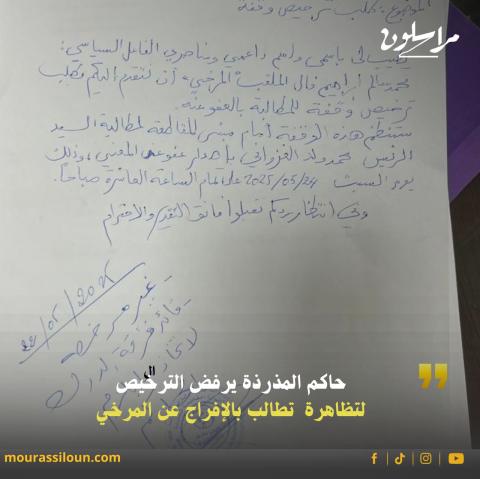 الموضوع: طلب ترخيص وقفة
مراسلون
يطيب لي باسمي واسم داعمي ومناصري الفاعل السياسي:
محمد سالم ابراهيم فال الملقب "المرخي" أن نتقدم اليكم بطلب
ترخيص وقفة للمطالبة بالعفو عنه.
ستنظم هذه الوقفة أمام مبنى المقاطعة لمطالبة السيد
الرئيس محمد ولد الغزواني بإصدار عفو عن المعني، وذلك
يوم السبت 2025/05/24 على تمام الساعة العاشرة صباحاً.
وفي انتظار ردكم تقبلوا فائق التقدير والاحترام
22/05/2025
غير مرخص
حاكم المذرذة يرفض الترخيص
لتظاهرة تطالب بالإفراج عن المرخي
mourassiloun.com